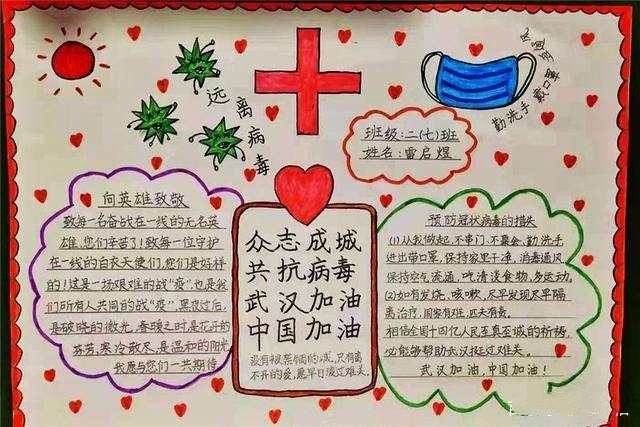 远离病毒
勤洗手 戴口罩
班级:二(七)班
姓名:雷启煜
向英雄致敬
致每一名奋战在一线的无名英
雄,您们辛苦了!致每一位守护
在一线的白衣天使们,您们是好样
的!这是一场艰难的战“疫”也是我
们所有人共同的战“疫”黑夜过后,
是破晓的微光,春暖之时是花开的
芬芳,寒冷散尽,是温和的阳光
我愿与您们一共期待
众志成城
共抗病毒
武汉加油
中国加油
没有被禁锢的城,只有离
不开的爱,愿早日渡过难关。
预防冠状病毒的措失
(1)从我做起,不串门,不聚会,勤洗手
进出带口罩,保持家里干净,消毒通风
保持空气流通,吃清谈食物,多运动。
(2)如有发烧,咳嗽,尽早发现尽早隔
离治疗,国家有难,匹夫有责。
相信全国十四亿人民至真至诚的祈祷,
必能够帮助武汉挺过难关。
武汉加油,中国加油!